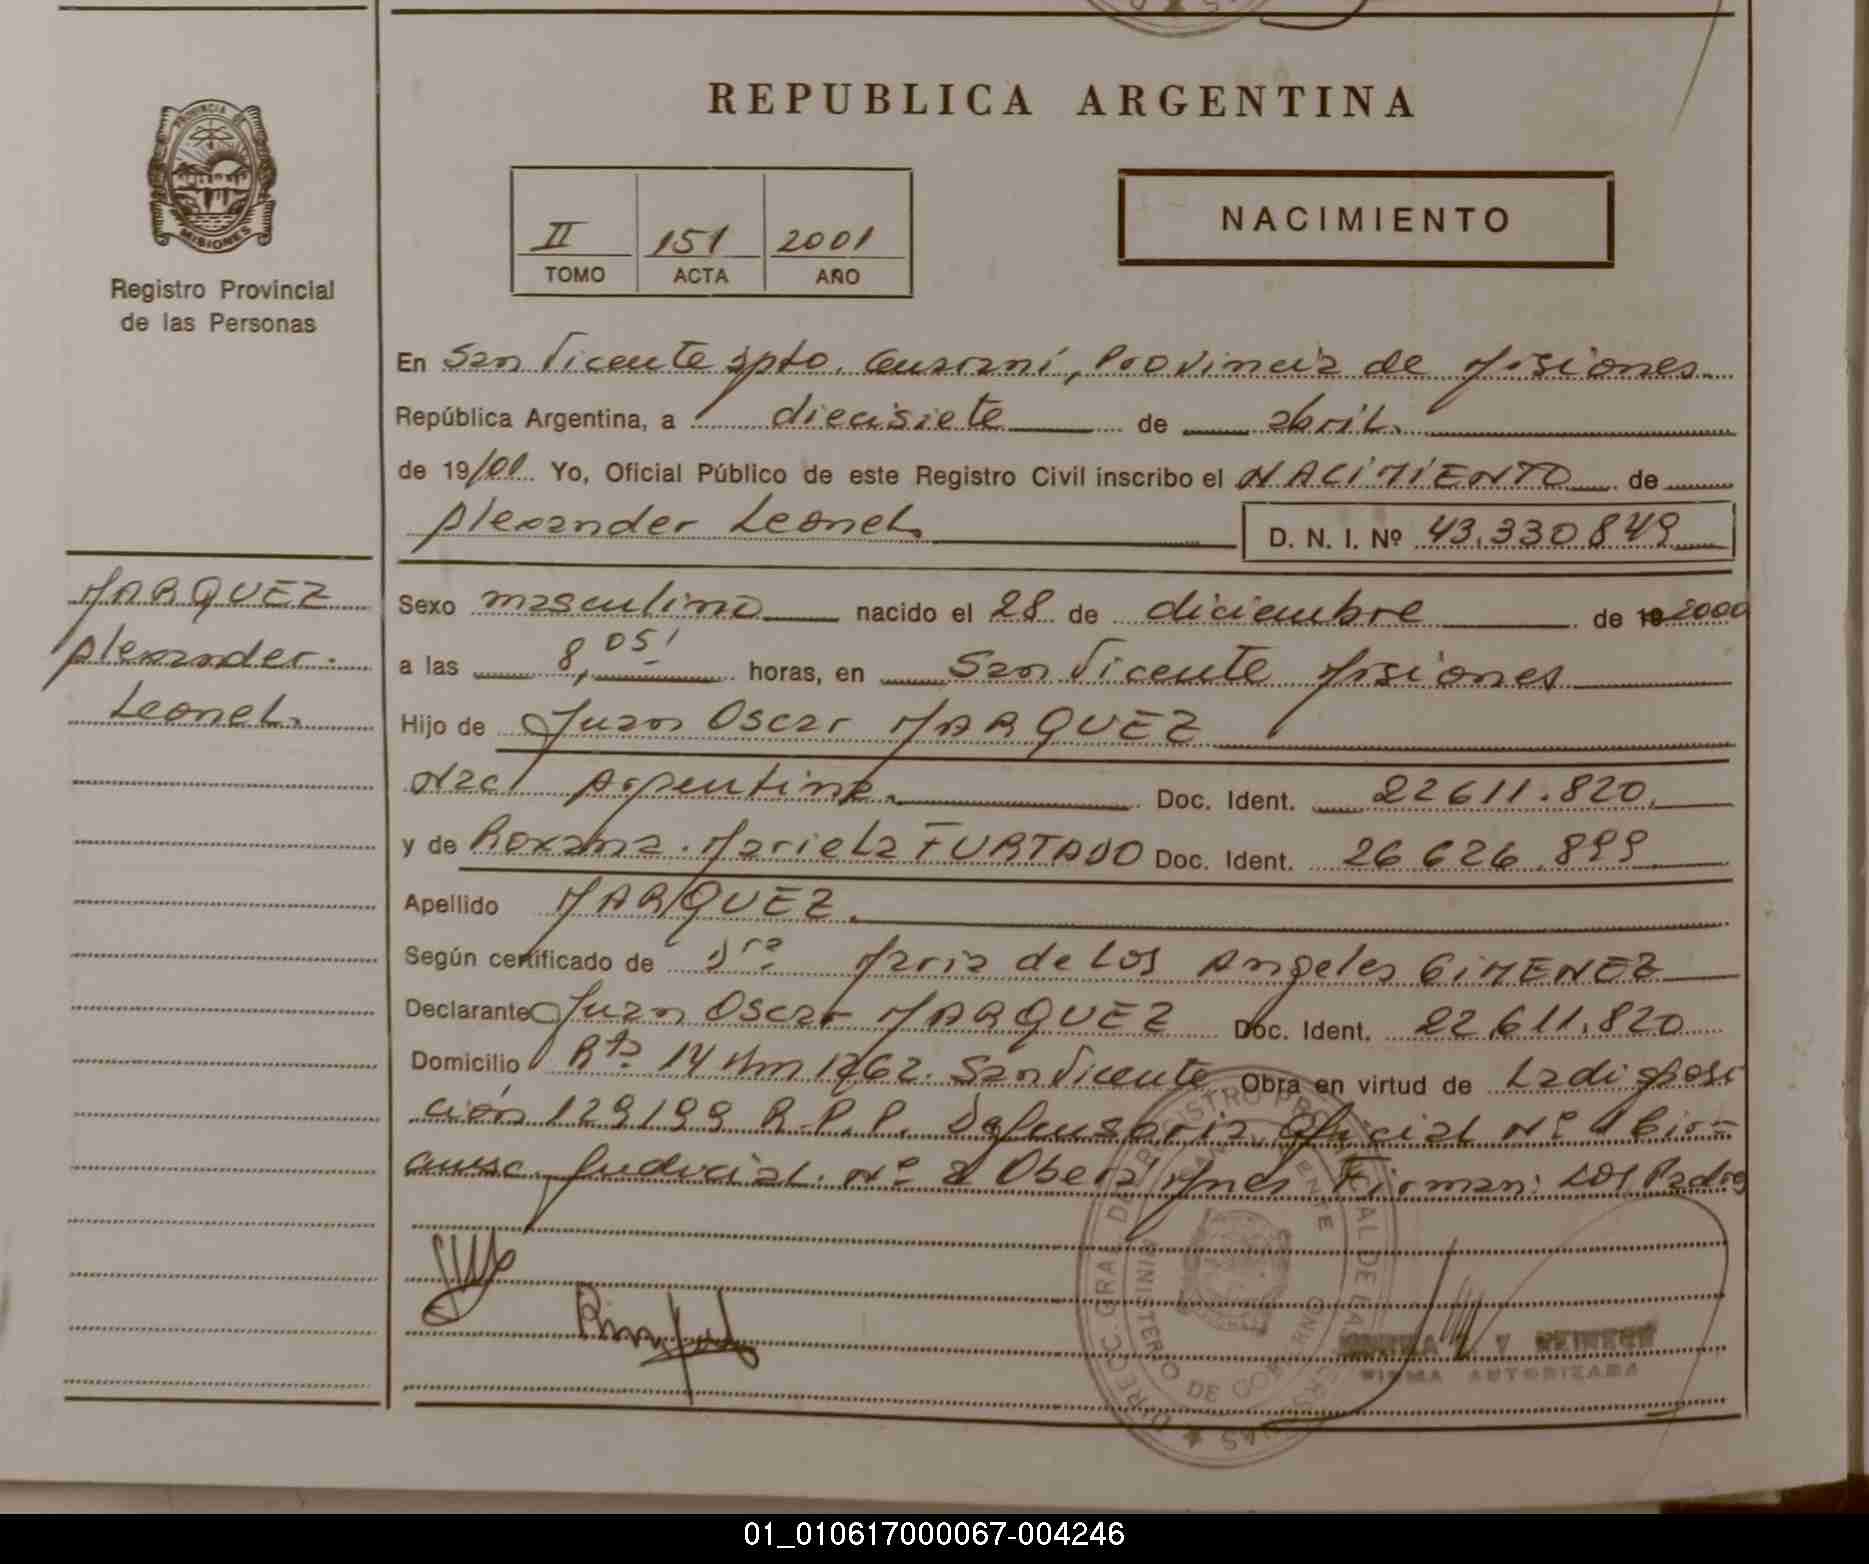 REPUBLICA ARGENTINA
PROVINCIA DE
MISIONES
Registro Provincial
de las Personas
II 151 2001
TOMO ACTA AÑO
NACIMIENTO
En San Vicente Dpto. Guaraní, Provincia de Misiones
República Argentina, a diecisiete de abril.
de 19/01 Yo, Oficial Público de este Registro Civil inscribo el NACIMIENTO de
Alexander Leonel. D. N. I. Nº 43.330849
MARQUEZ
Alexander.
Leonel.
Sexo masculino nacido el 28 de diciembre de 19 2000
a las 8,05' horas, en San Vicente Misiones
Hijo de Juan Oscar MARQUEZ
Nac. Argentina. Doc. Ident. 22611.820.
y de Roxana. Mariela FURTADO Doc. Ident. 26626.899
Apellido MARQUEZ.
Según certificado de Dra Maria de Los Angeles GIMENEZ
Declarante Juan Oscar MARQUEZ Doc. Ident. 22611.820
Domicilio Rta 14 Km 1262. San Vicente Obra en virtud de La disposi
ción 129199 R.P.P. Defensoria Oficial Nº 1 Circ=
cunsc. Judicial. Nº 2 Obera Mnes Firman: Los Padres
DIRECC. GRAL. DEL REGISTRO PROVINCIAL DE LAS PERSONAS
MINISTERIO DE GOBIERNO
SAN VICENTE
FIRMA AUTORIZADA
01_010617000067-004246